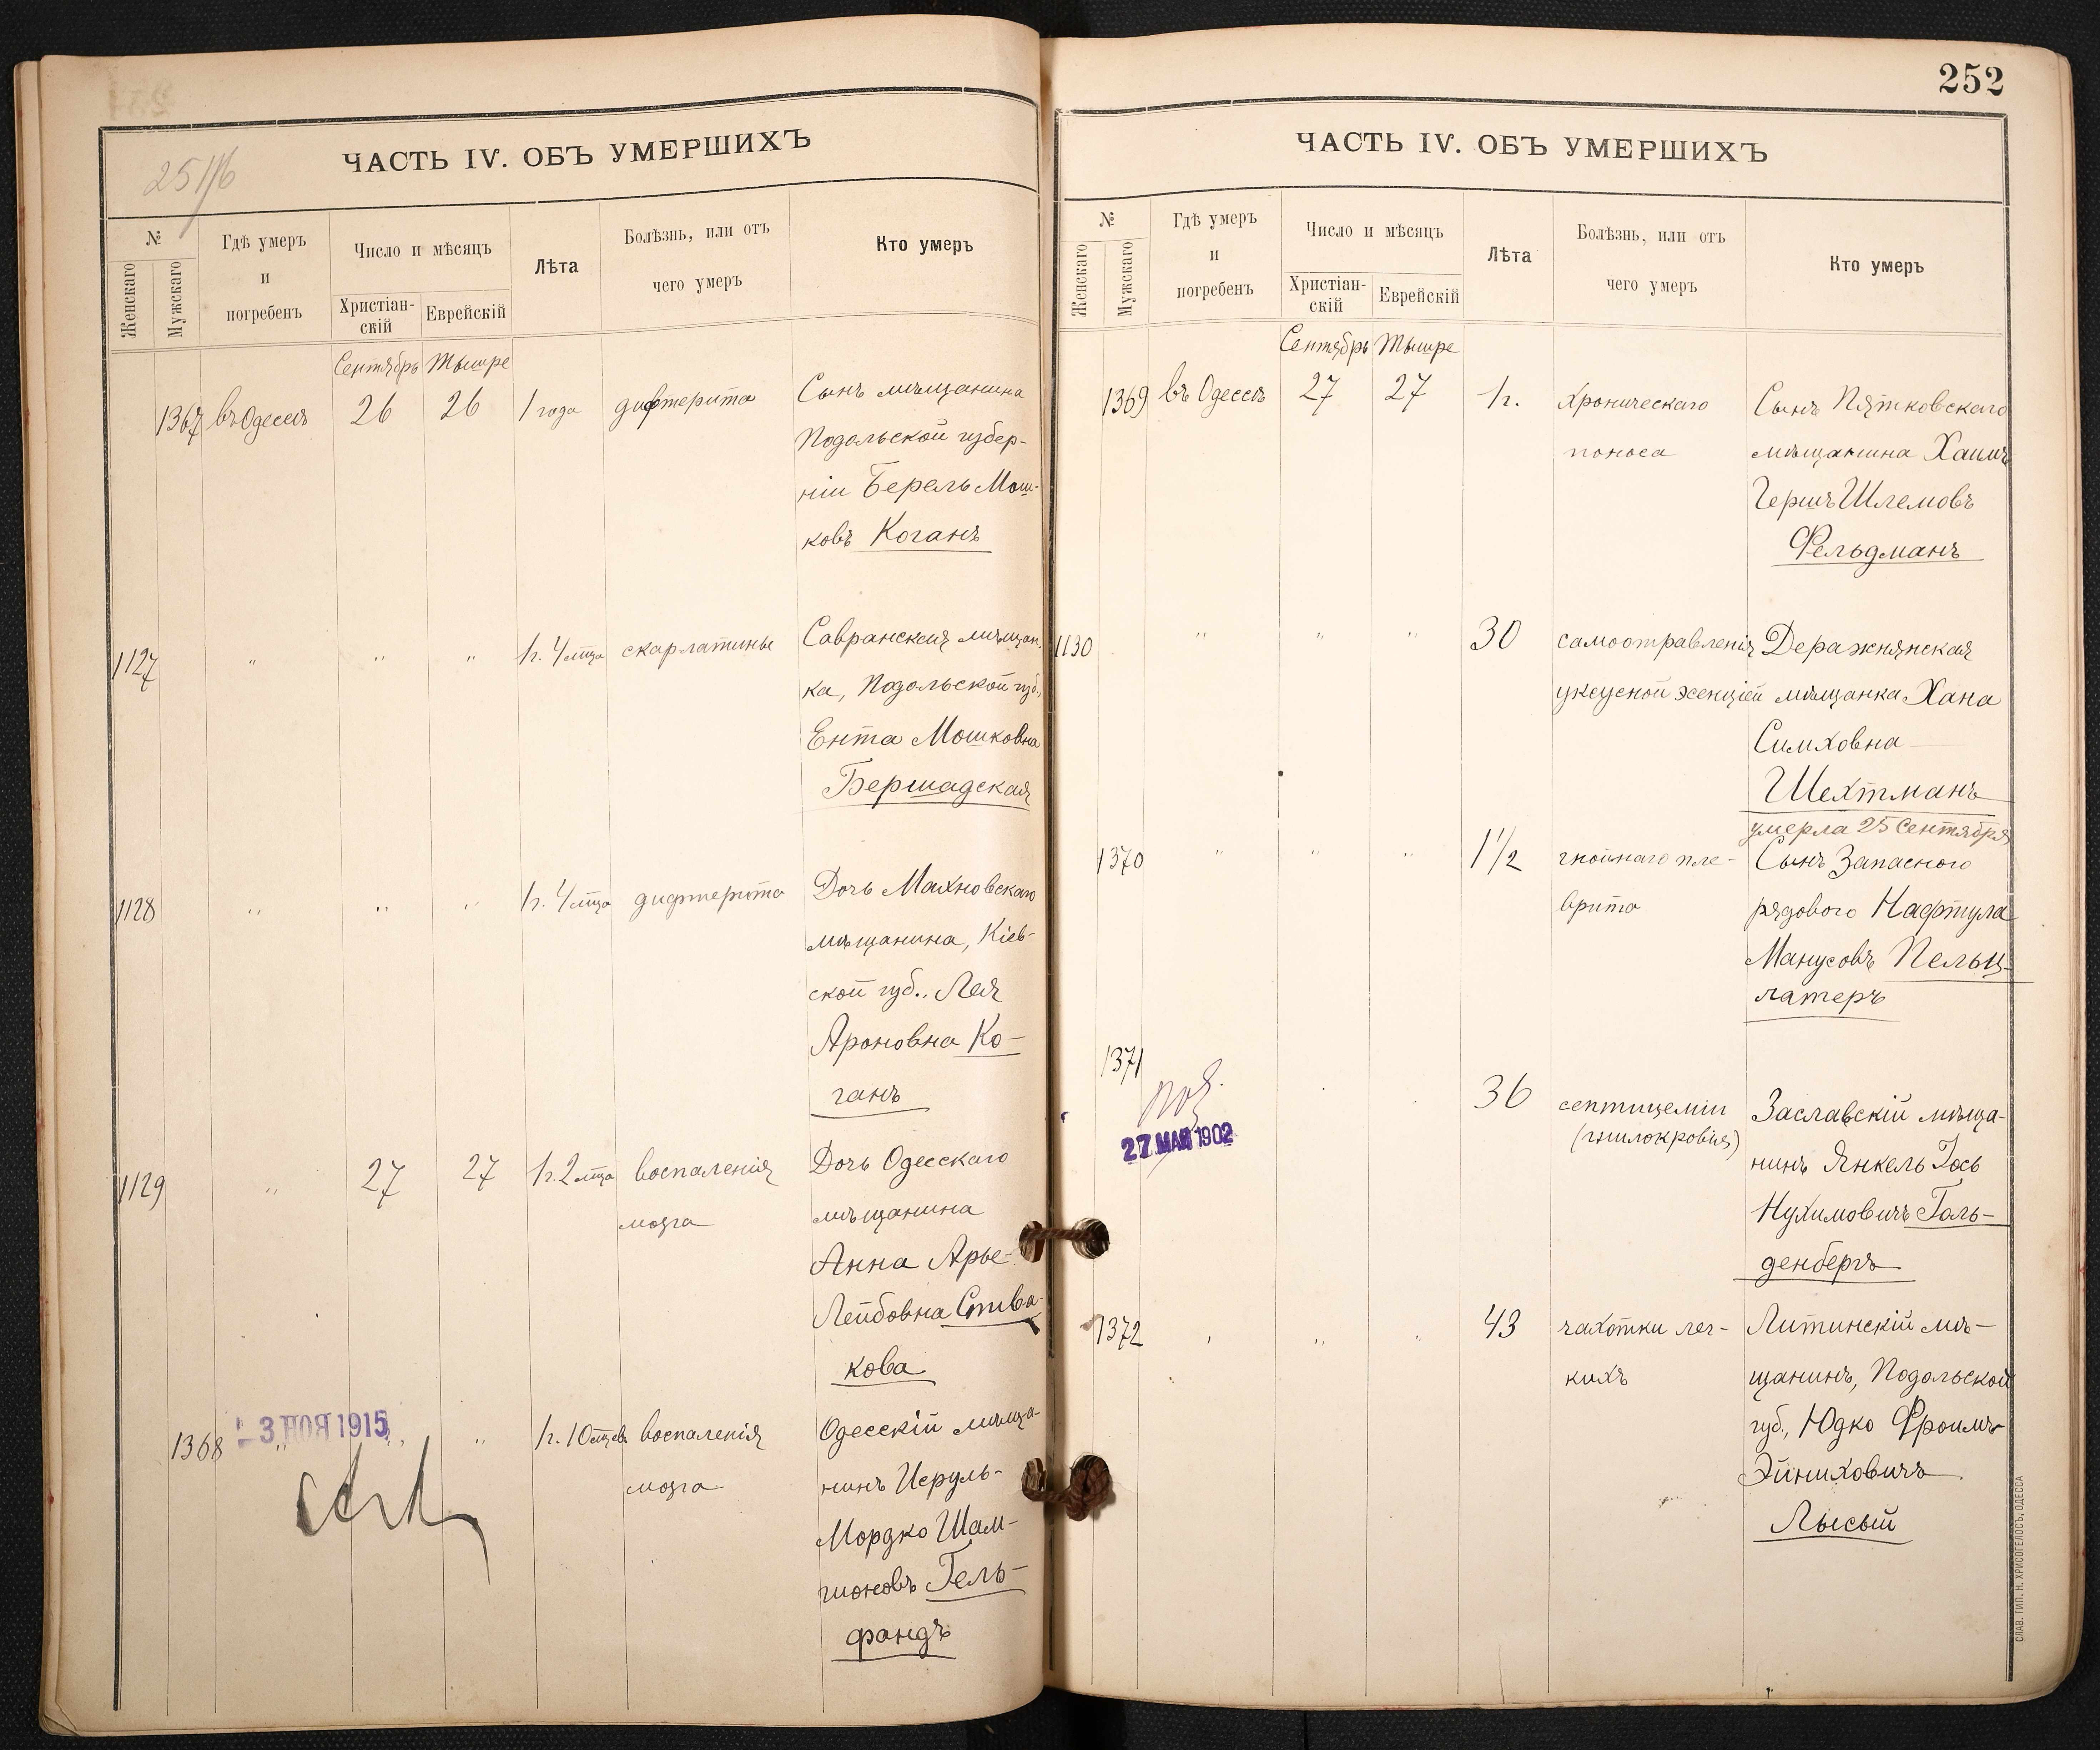 252
251/б
ЧАСТЬ IV. ОБЪ УМЕРШИХЪ
№
Женскаго
Мужскаго
Гдѣ умеръ
и
погребенъ
Число и мѣсяцъ
Христіан-
скій
Еврейскій
Лѣта
Болѣзнь, или отъ
чего умеръ
Кто умеръ
Сентябрь Тышре
1367 въ Одессѣ 26 26 1 года дифтерита Сынъ мѣщанина
Подольской губер-
ніи Берель Мош-
ковъ Коганъ
1127 " " " 1 г. 4 мца скарлатины Савранская мѣщан-
ка, Подольской губ.,
Ента Мошковна
Бершадская
1128 " " " 1 г. 4 мца дифтерита Дочь Махновскаго
мѣщанина, Кіев-
ской губ., Лея
Ароновна Ко-
ганъ
1129 " 27 27 1 г. 2 мца воспаленія Дочь Одесскаго
мозга мѣщанина
Анна Арье-
Лейбовна Спива-
кова
1368 " " " 1 г. 10 мцев воспаленія Одесскій мѣща-
- 3 НОЯ 1915
мозга нинъ Исруль-
Мордко Шам-
шоновъ Гель-
фандъ
ЧАСТЬ IV. ОБЪ УМЕРШИХЪ
№
Женскаго
Мужскаго
Гдѣ умеръ
и
погребенъ
Число и мѣсяцъ
Христіан-
скій
Еврейскій
Лѣта
Болѣзнь, или отъ
чего умеръ
Кто умеръ
Сентябрь Тышре
1369 въ Одессѣ 27 27 1 г. Хроническаго Сынъ Пятковскаго
поноса мѣщанина Хаимъ
Гершъ Шлемовъ
Фельдманъ
1130 " " " 30 самоотравленія Деражнянская
уксусной эсенціей мѣщанка Хана
Симховна
Шехтманъ
умерла 25 Сентября
1370 " " " 1 1/2 гнойнаго пле- Сынъ Запасного
врита рядового Нафтула
Манусовъ Пельц-
латеръ
1371 36 септицеміи Заславскій мѣща-
(гнилокровія)
27 МАЯ 1902
нинъ Янкель Іось
Нухимовичъ Голь-
денбергъ
1372 " " " 43 чахотки лег- Литинскій мѣ-
кихъ щанинъ, Подольской
губ., Юдко Фроимъ
Эйниховичъ
Лысый
СЛАВ. ТИП. Н. ХРИСОГЕЛОСЪ, ОДЕССА